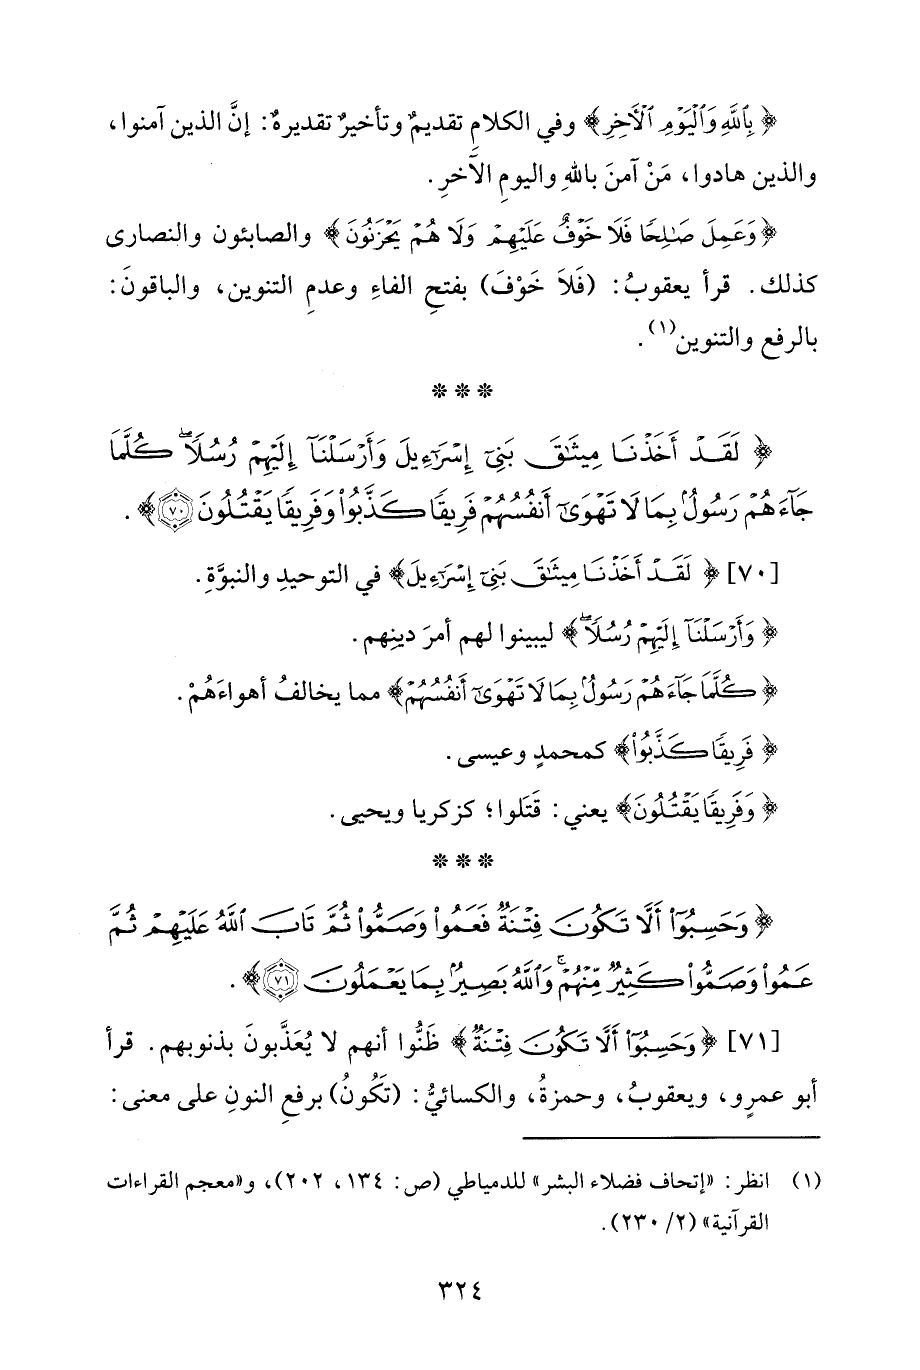 ﴿ بِٱللَّهِ وَٱلْيَوْمِ ٱلْأَخِرِ ﴾ وفي الكلامِ تقديمٌ وتأخيرٌ تقديرهُ: إنَّ الذين آمنوا،
والذين هادوا، مَنْ آمنَ باللهِ واليومِ الآخرِ.
﴿ وَعَمِلَ صَٰلِحًا فَلَا خَوْفٌ عَلَيْهِمْ وَلَا هُمْ يَحْزَنُونَ ﴾ والصابئون والنصارى
كذلك. قرأ يعقوبُ: (فَلاَ خَوْفَ) بفتحِ الفاءِ وعدمِ التنوين، والباقونَ:
بالرفعِ والتنوين(١).
* * *
﴿ لَقَدْ أَخَذْنَا مِيثَٰقَ بَنِىٓ إِسْرَٰٓءِيلَ وَأَرْسَلْنَآ إِلَيْهِمْ رُسُلًا ۖ كُلَّمَا
جَآءَهُمْ رَسُولٌۢ بِمَا لَا تَهْوَىٰٓ أَنفُسُهُمْ فَرِيقًا كَذَّبُوا۟ وَفَرِيقًا يَقْتُلُونَ ﴿٧٠﴾ ﴾.
[٧٠] ﴿ لَقَدْ أَخَذْنَا مِيثَٰقَ بَنِىٓ إِسْرَٰٓءِيلَ ﴾ في التوحيدِ والنبوَّةِ.
﴿ وَأَرْسَلْنَآ إِلَيْهِمْ رُسُلًا ۖ ﴾ ليبينوا لهم أمرَ دينِهم.
﴿ كُلَّمَا جَآءَهُمْ رَسُولٌۢ بِمَا لَا تَهْوَىٰٓ أَنفُسُهُمْ ﴾ مما يخالفُ أهواءَهُمْ.
﴿ فَرِيقًا كَذَّبُوا۟ ﴾ كمحمدٍ وعيسى.
﴿ وَفَرِيقًا يَقْتُلُونَ ﴾ يعني: قَتَلوا؛ كزكريا ويحيى.
* * *
﴿ وَحَسِبُوٓا۟ أَلَّا تَكُونَ فِتْنَةٌ فَعَمُوا۟ وَصَمُّوا۟ ثُمَّ تَابَ ٱللَّهُ عَلَيْهِمْ ثُمَّ
عَمُوا۟ وَصَمُّوا۟ كَثِيرٌ مِّنْهُمْ ۚ وَٱللَّهُ بَصِيرٌۢ بِمَا يَعْمَلُونَ ﴿٧١﴾ ﴾.
[٧١] ﴿ وَحَسِبُوٓا۟ أَلَّا تَكُونَ فِتْنَةٌ ﴾ ظَنُّوا أنهم لا يُعَذَّبونَ بذنوبهم. قرأ
أبو عمرٍو، ويعقوبُ، وحمزةُ، والكسائيُّ: (تَكُونُ) برفعِ النونِ على معنى:
(١) انظر: «إتحاف فضلاء البشر» للدمياطي (ص: ١٣٤، ٢٠٢)، و«معجم القراءات
القرآنية» (٢/ ٢٣٠).
٣٢٤